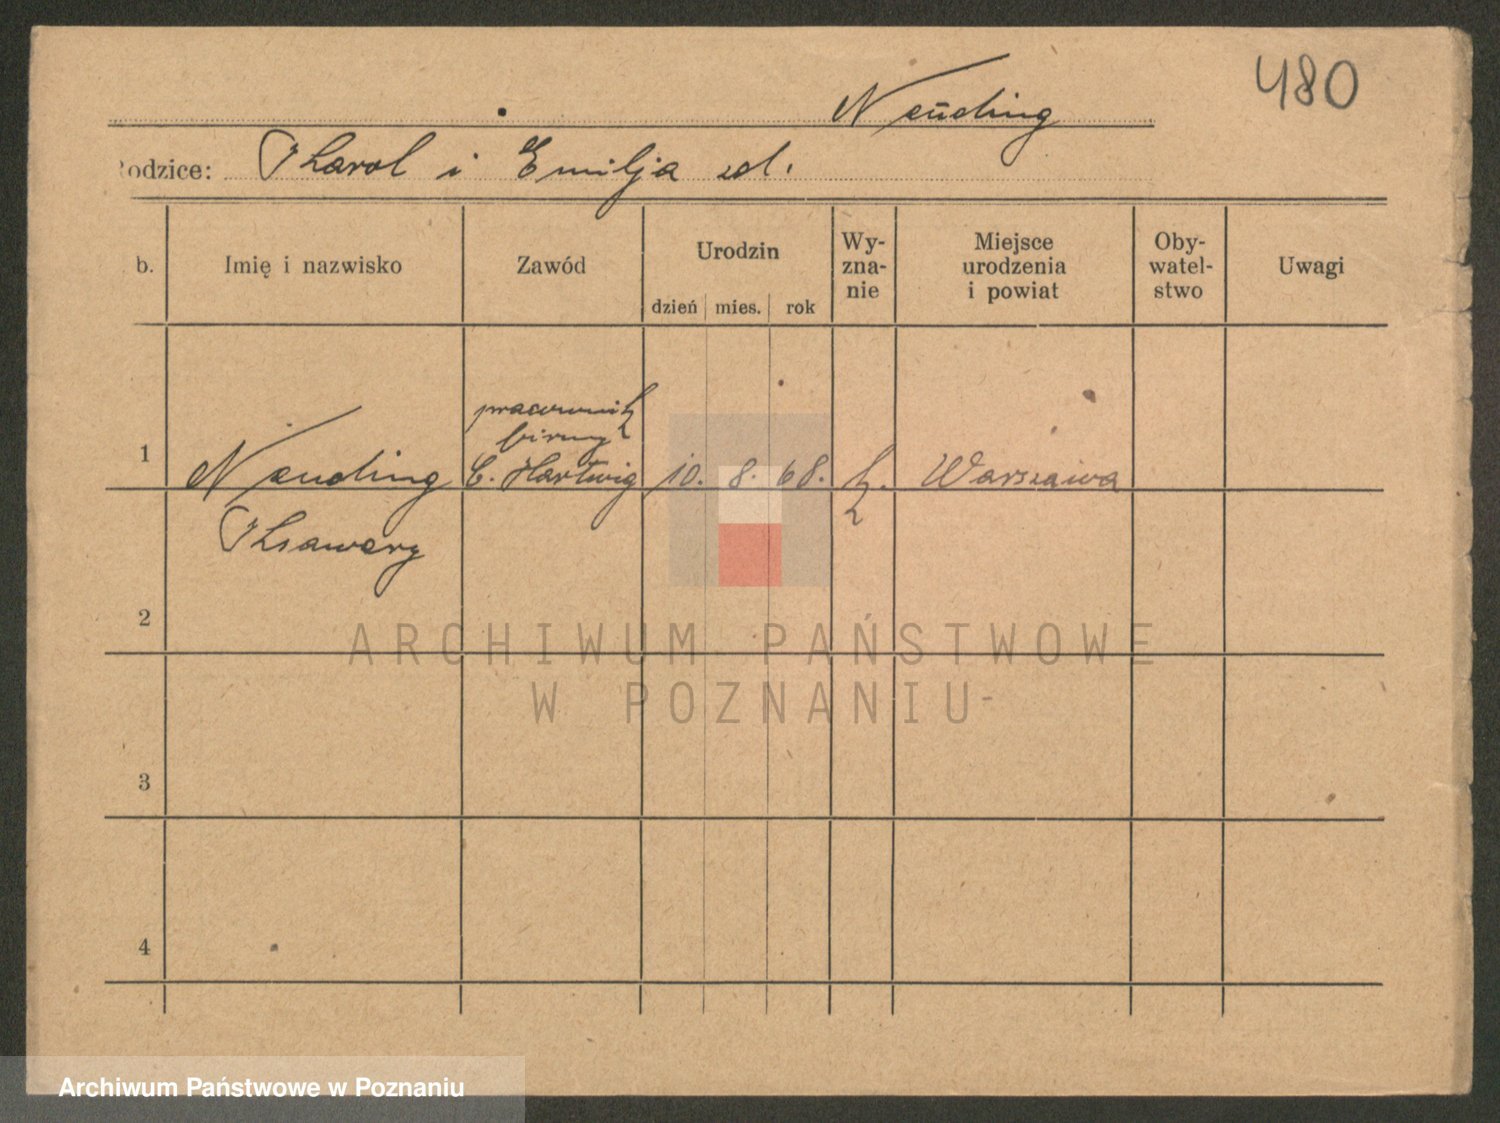 480
Neuding
Rodzice: Karol i Emilja zd.
b. Imię i nazwisko Zawód Urodzin dzień mies. rok Wy-zna-nie Miejsce urodzenia i powiat Oby-watel-stwo Uwagi
pracownik
firmy
1 Neuding C. Hartwig 10. 8. 68. k. Warszawa
Ksawery
2
ARCHIWUM PAŃSTWOWE
W POZNANIU
3
4
Archiwum Państwowe w Poznaniu